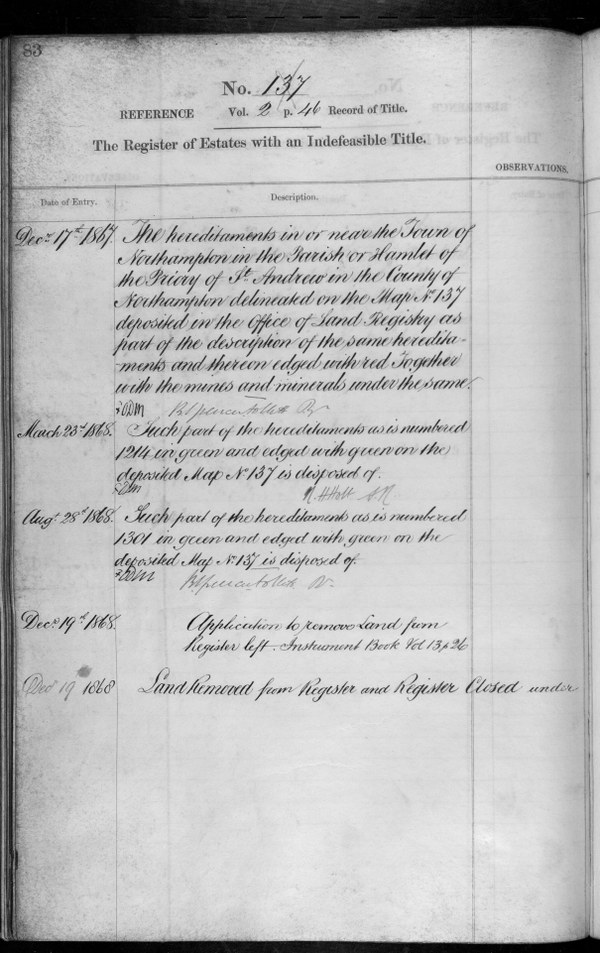 83
No. 137
REFERENCE Vol. 2 p. 46 Record of Title.
The Register of Estates with an Indefeasible Title.
OBSERVATIONS.
Date of Entry. Description.
Decr. 17th 1867. The hereditaments in or near the Town of
Northampton in the Parish or Hamlet of
the Priory of St. Andrew in the County of
Northampton delineated on the Map No. 137
deposited in the Office of Land Registry as
part of the description of the same heredita-
ments and thereon edged with red Together
with the mines and minerals under the same.
March 23rd 1868. Such part of the hereditaments as is numbered
1214 in green and edged with green on the
deposited Map No. 137 is disposed of.
R. H. Holt
Augt. 28th 1868. Such part of the hereditaments as is numbered
1301 in green and edged with green on the
deposited Map No. 137 is disposed of.
Decr. 19th 1868. Application to remove Land from
Register left. Instrument Book Vol 13 p 26
Decr 19 1868 Land Removed from Register and Register Closed under